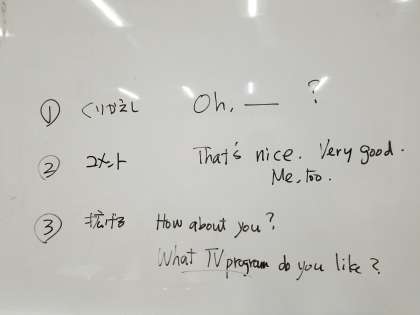 ① くりかえし Oh, ― ?
② コメント That's nice. Very good.
Me, too.
③ 拡げる How about you?
What TV program do you like?